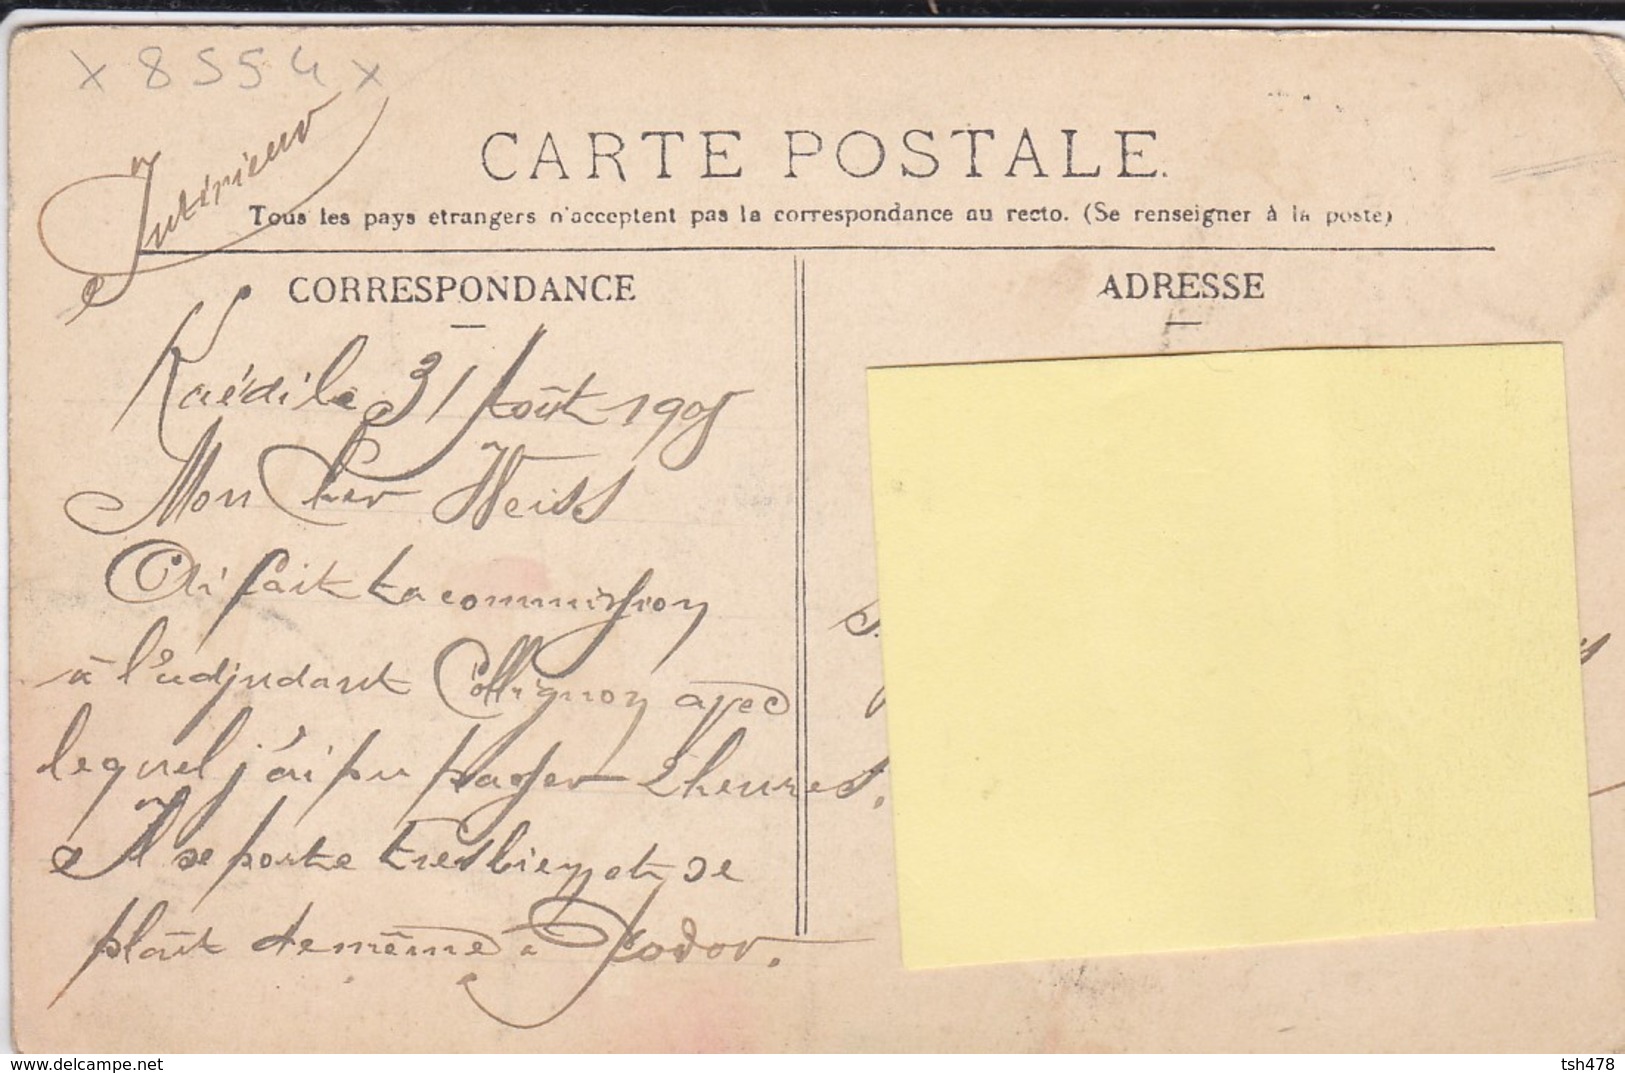 x 8554 x
Intérieur
CARTE POSTALE.
Tous les pays etrangers n'acceptent pas la correspondance au recto. (Se renseigner à la poste)
CORRESPONDANCE
ADRESSE
Kaédi le 31 Août 1905
Mon Cher Weiss
Ai fait ta commission
à l'adjudant Collignon avec
lequel j'ai pu passer 2 heures.
Il se porte tres bien et se
plaît de même à Podor.
https://www.delcampe.net
tsh478